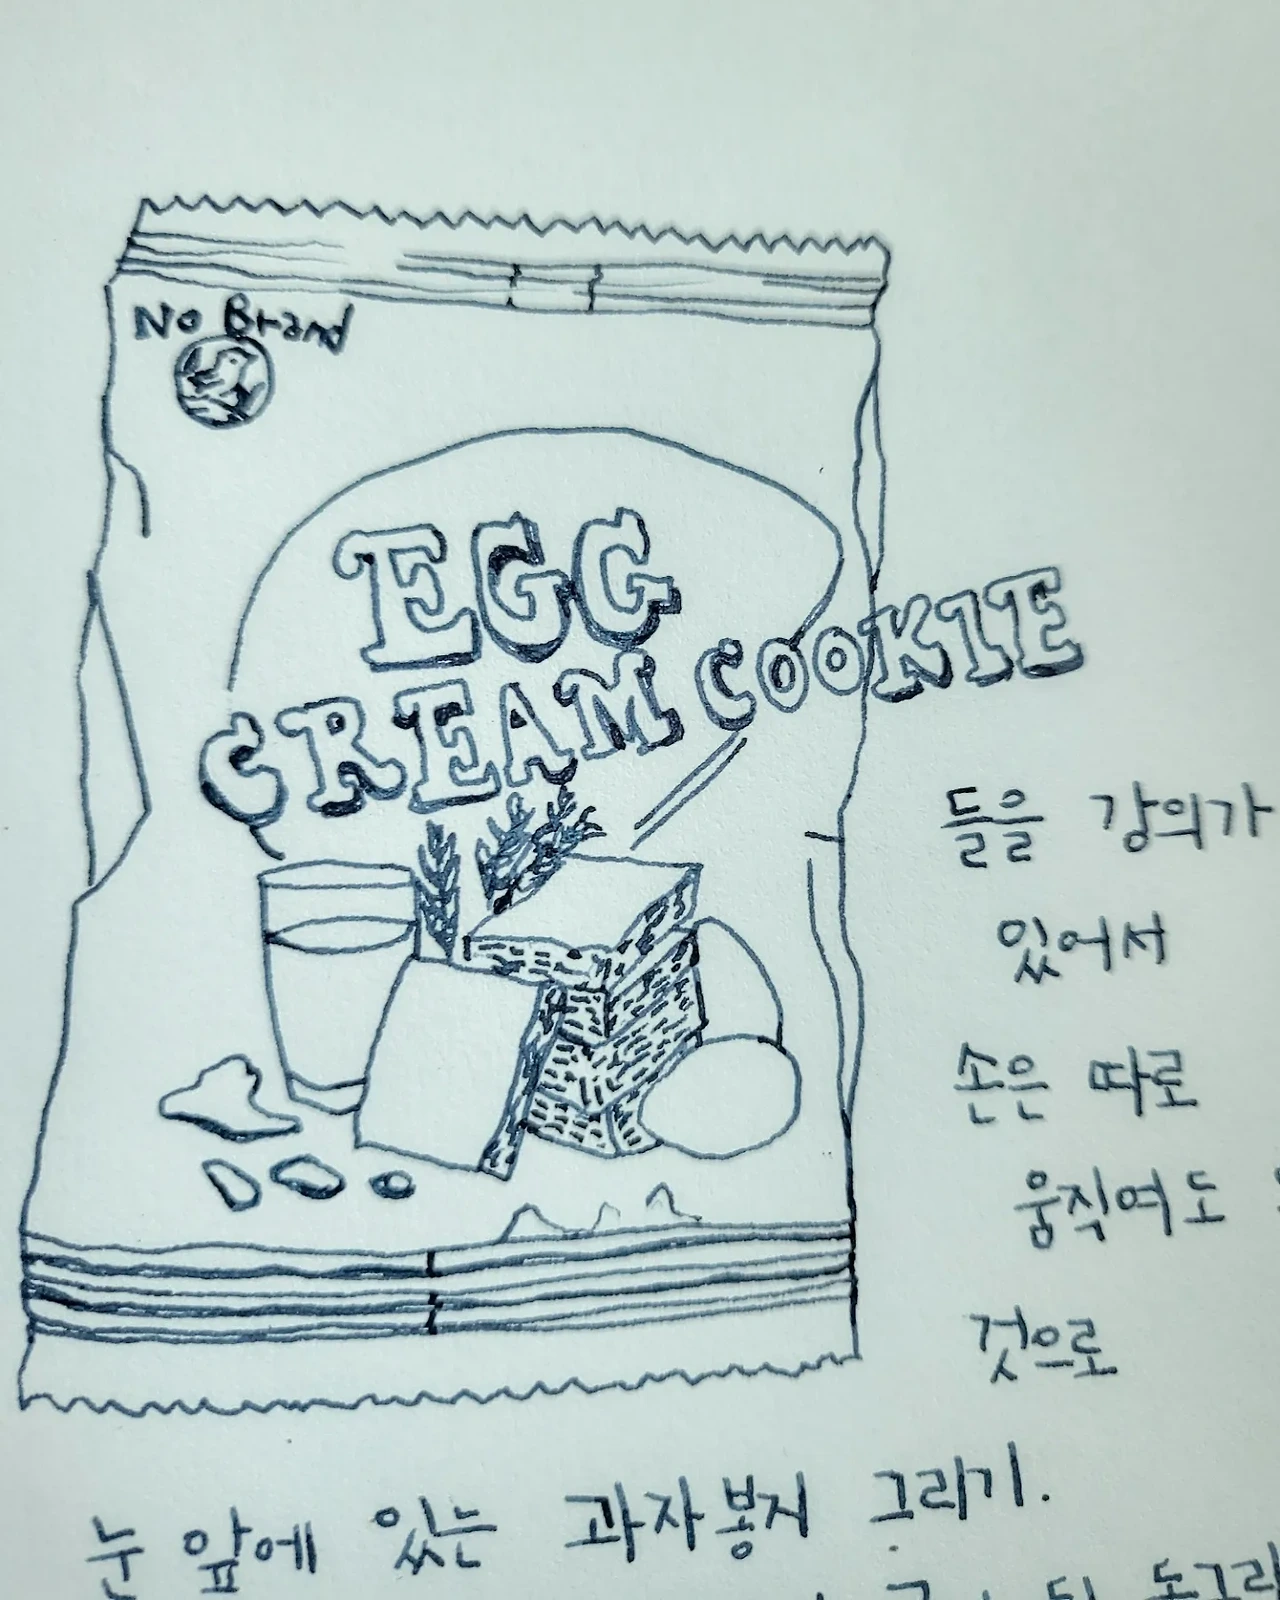 No Brand
EGG
CREAM COOKIE
들을 강의가
있어서
손은 따로
움직여도
것으로
눈 앞에 있는 과자봉지 그리기.